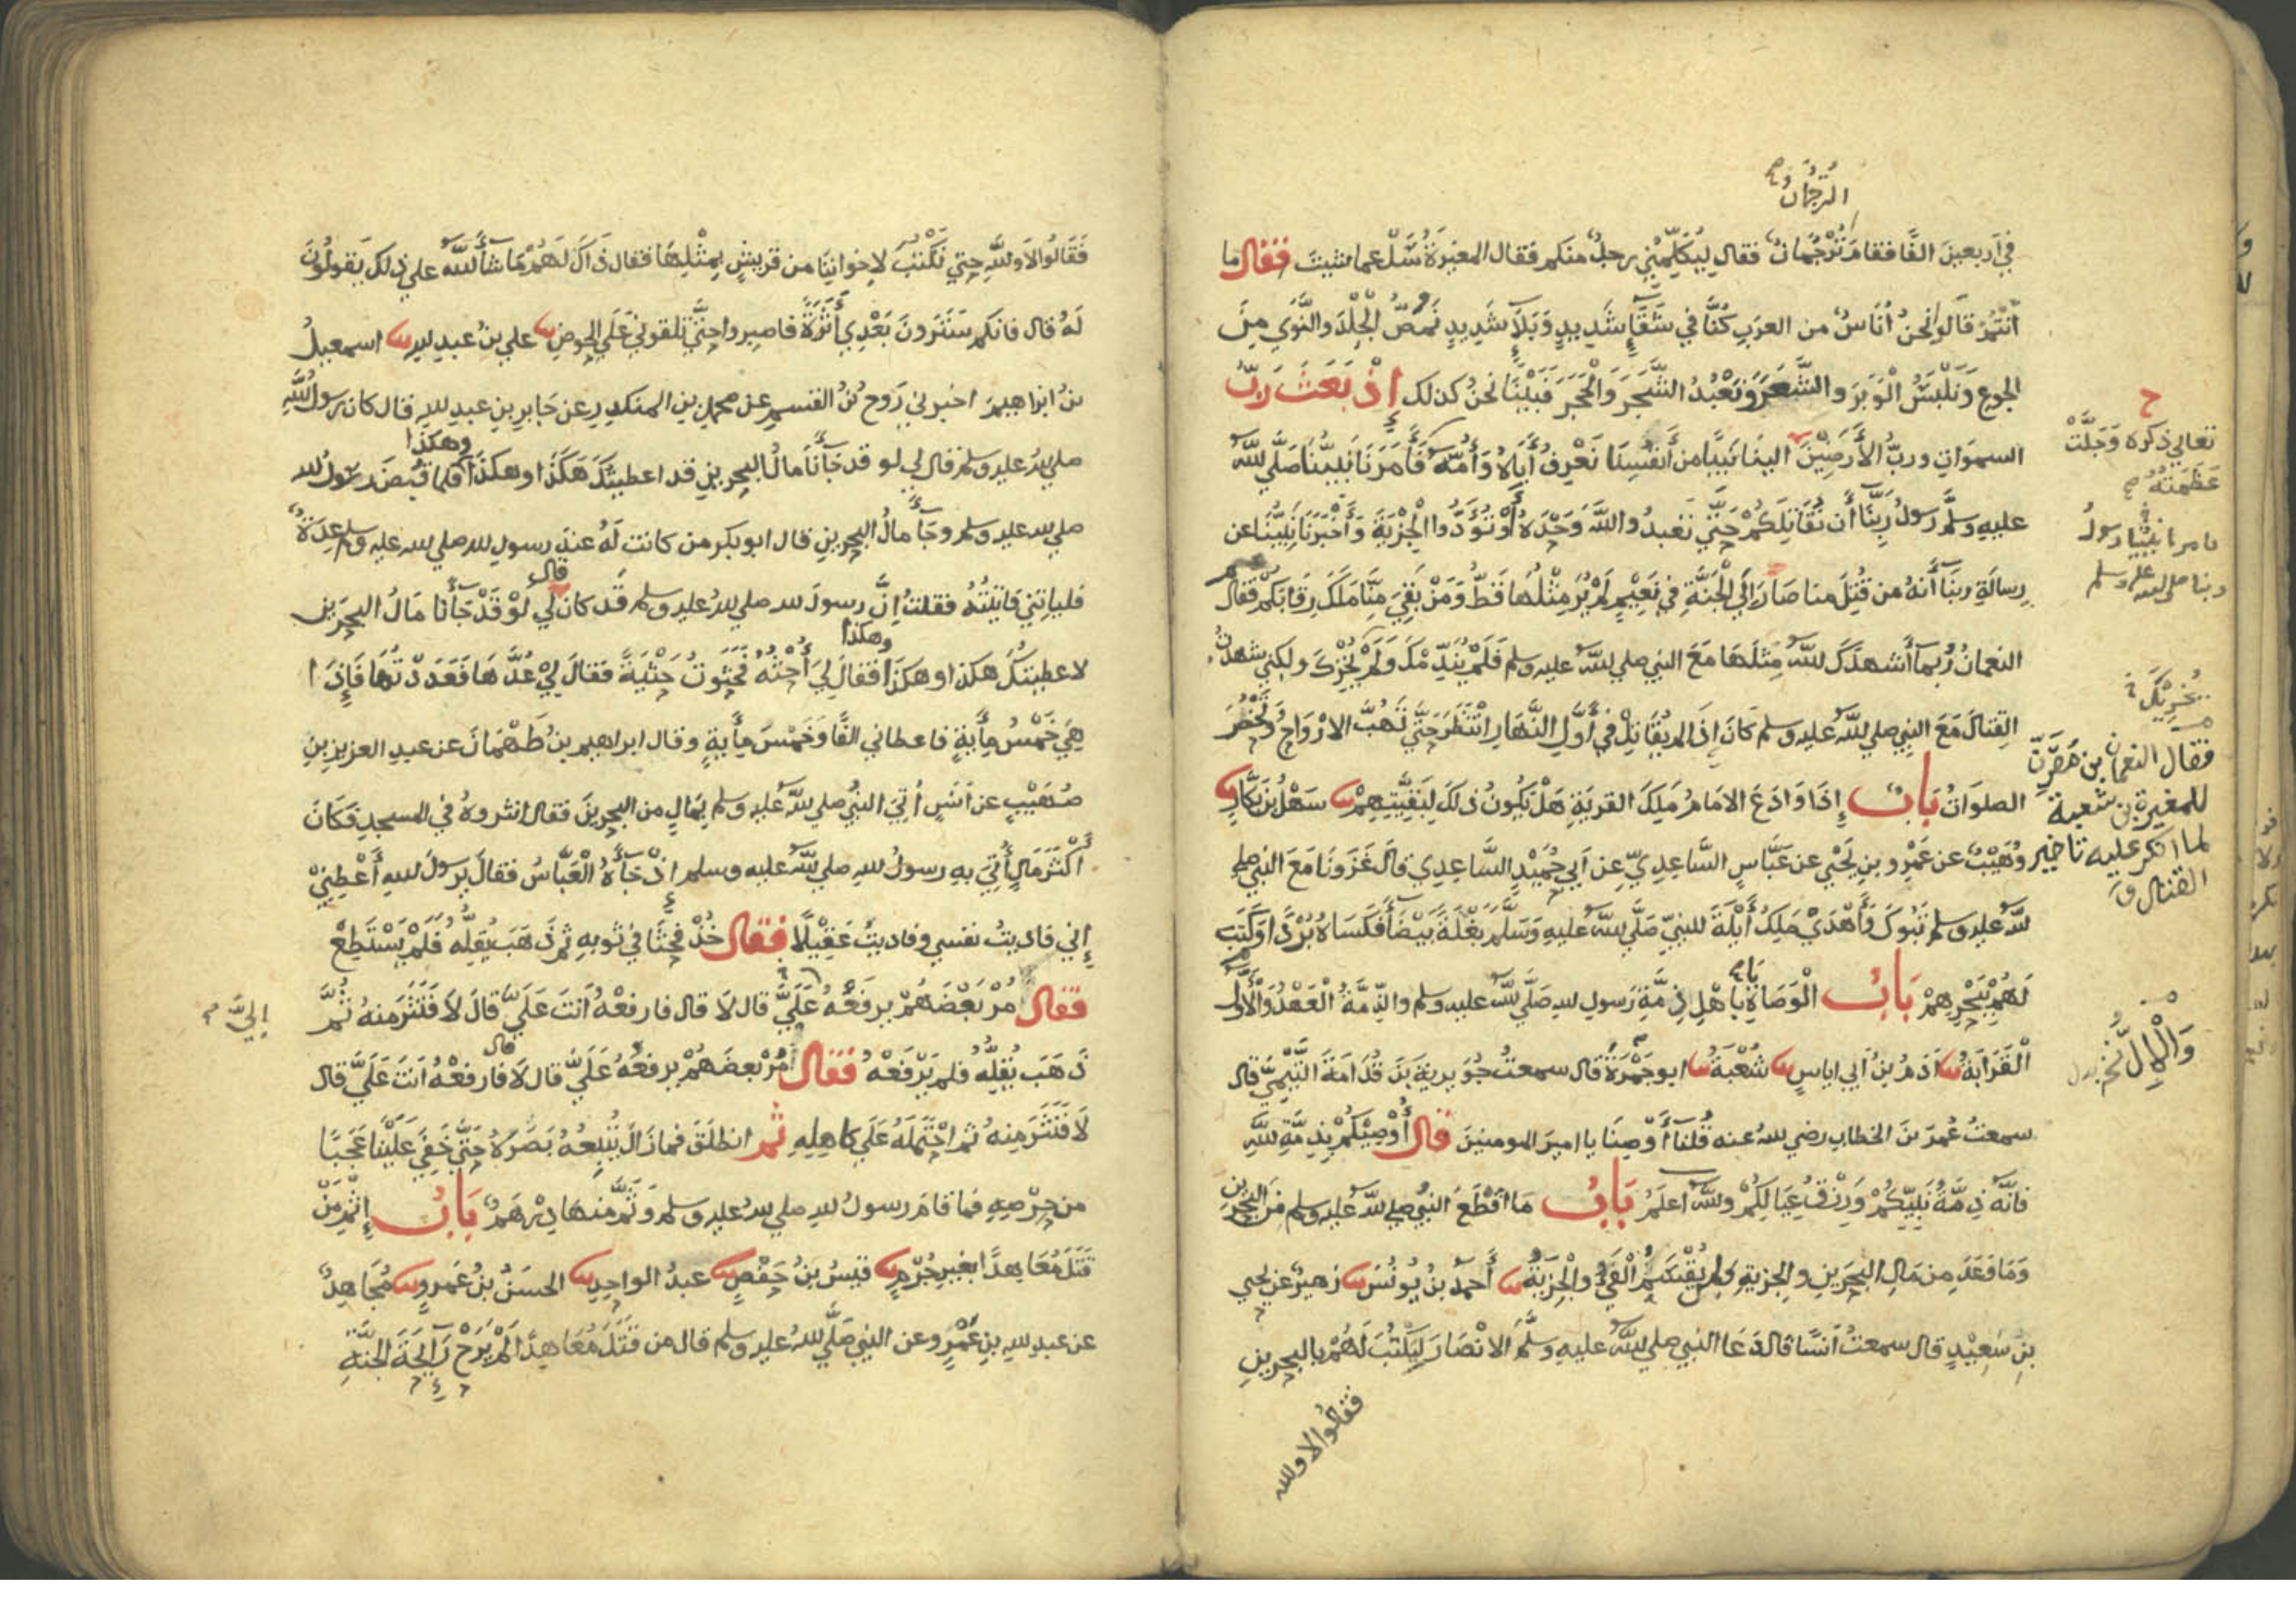 الترجمان
في اربعين الفا فقام ترجمان فقال ليكلمني رجل منكم فقال المغيرة سل عما شئت فقال ما
انتم قالوا نحن اناس من العرب كنا في شقاء شديد وبلاء شديد نمص الجلد والنوى من
الجوع ونلبس الوبر والشعر ونعبد الشجر والحجر فبينا نحن كذلك اذ بعث رب
السموات ورب الارضين الينا نبيا من انفسنا نعرف اباه وامه فامرنا نبينا صلى الله
عليه وسلم رسول ربنا ان نقاتلكم حتى تعبدوا الله وحده او تؤدوا الجزية واخبرنا نبينا عن
رسالة ربنا انه من قتل منا صار الى الجنة في نعيم لم ير مثلها قط ومن بقي منا ملك رقابكم فقال
النعمان ربما اشهدك الله مثلها مع النبي صلى الله عليه وسلم فلم يندمك ولم يخزك ولكني شهدت
القتال مع النبي صلى الله عليه وسلم كان اذا لم يقاتل في اول النهار انتظر حتى تهب الارواح وتحضر
الصلوات باب اذا وادع الامام ملك القرية هل يكون ذلك لبقيتهم سهل بن بكار
وهيب عن عمرو بن يحيى عن عباس الساعدي عن ابي حميد الساعدي قال غزونا مع النبي صلى
الله عليه وسلم تبوك واهدى ملك أيلة للنبي صلى الله عليه وسلم بغلة بيضاء فكساه بردا وكتب
لهم ببحرهم باب الوصاة باهل ذمة رسول الله صلى الله عليه وسلم والذمة العهد والال
القرابة آدم بن ابي اياس شعبة ابو جمرة قال سمعت جويرية بن قدامة التميمي قال
سمعت عمر بن الخطاب رضي الله عنه قلنا اوصنا يا امير المومنين قال اوصيكم بذمة الله
فانه ذمة نبيكم ورزق عيالكم والله اعلم باب ما اقطع النبي صلى الله عليه وسلم من البحرين
وما وعد من مال البحرين والجزية ولمن يقسم الفيء والجزية أحمد بن يونس زهير عن يحيى
بن سعيد قال سمعت انسا قال دعا النبي صلى الله عليه وسلم الانصار ليكتب لهم بالبحرين
فقالوا لا والله
تعالى ذكره وجلت
عظمته
فامرنا نبينا رسول
ربنا صلى الله عليه وسلم
فقال النعمان بن مقرن
للمغيرة بن شعبة
لما انكر عليه تاخير
القتال
فقالوا لا والله حتى تكتب لاخواننا من قريش بمثلها فقال ذاك لهم ما شاء الله على ذلك يقولون
له قال فانكم سترون بعدي أثرة فاصبروا حتى تلقوني على الحوض علي بن عبد الله اسمعيل
بن ابراهيم اخبرني روح بن القسم عن محمد بن المنكدر عن جابر بن عبد الله قال كان رسول الله
صلى الله عليه وسلم قال لي لو قد جاءنا مال البحرين قد اعطيتك هكذا وهكذا وهكذا فلما قبض رسول الله
صلى الله عليه وسلم وجاء مال البحرين قال ابو بكر من كانت له عند رسول الله صلى الله عليه وسلم عدة
فلياتني فاتيته فقلت ان رسول الله صلى الله عليه وسلم قد كان قال لي لو قد جاءنا مال البحرين
لاعطيتك هكذا وهكذا وهكذا فقال لي احثه فحثوت حثية فقال لي عدها فعددتها فاذا
هي خمس مأية فاعطاني الفا وخمس مأية وقال ابراهيم بن طهمان عن عبد العزيز بن
صهيب عن انس أتي النبي صلى الله عليه وسلم بمال من البحرين فقال انثروه في المسجد فكان
أكثر مال أتي به رسول الله صلى الله عليه وسلم اذ جاءه العباس فقال يرسول الله أعطني
إني فاديت نفسي وفاديت عقيلا فقال خذ فحثا في ثوبه ثم ذهب يقله فلم يستطع
فقال مر بعضهم يرفعه علي قال لا قال فارفعه انت علي قال لا فنثر منه ثم
إلي
ذهب يقله فلم يرفعه فقال مر بعضهم يرفعه علي قال لا قال فارفعه انت علي قال
لا فنثر منه ثم احتمله على كاهله ثم انطلق فما زال يتبعه بصره حتى خفي علينا عجبا
من حرصه فما قام رسول الله صلى الله عليه وسلم وثم منها درهم باب إثم من
قتل معاهدا بغير جرم قيس بن حفص عبد الواحد الحسن بن عمرو مجاهد
عن عبد الله بن عمرو عن النبي صلى الله عليه وسلم قال من قتل معاهدا لم يرح رايحة الجنة